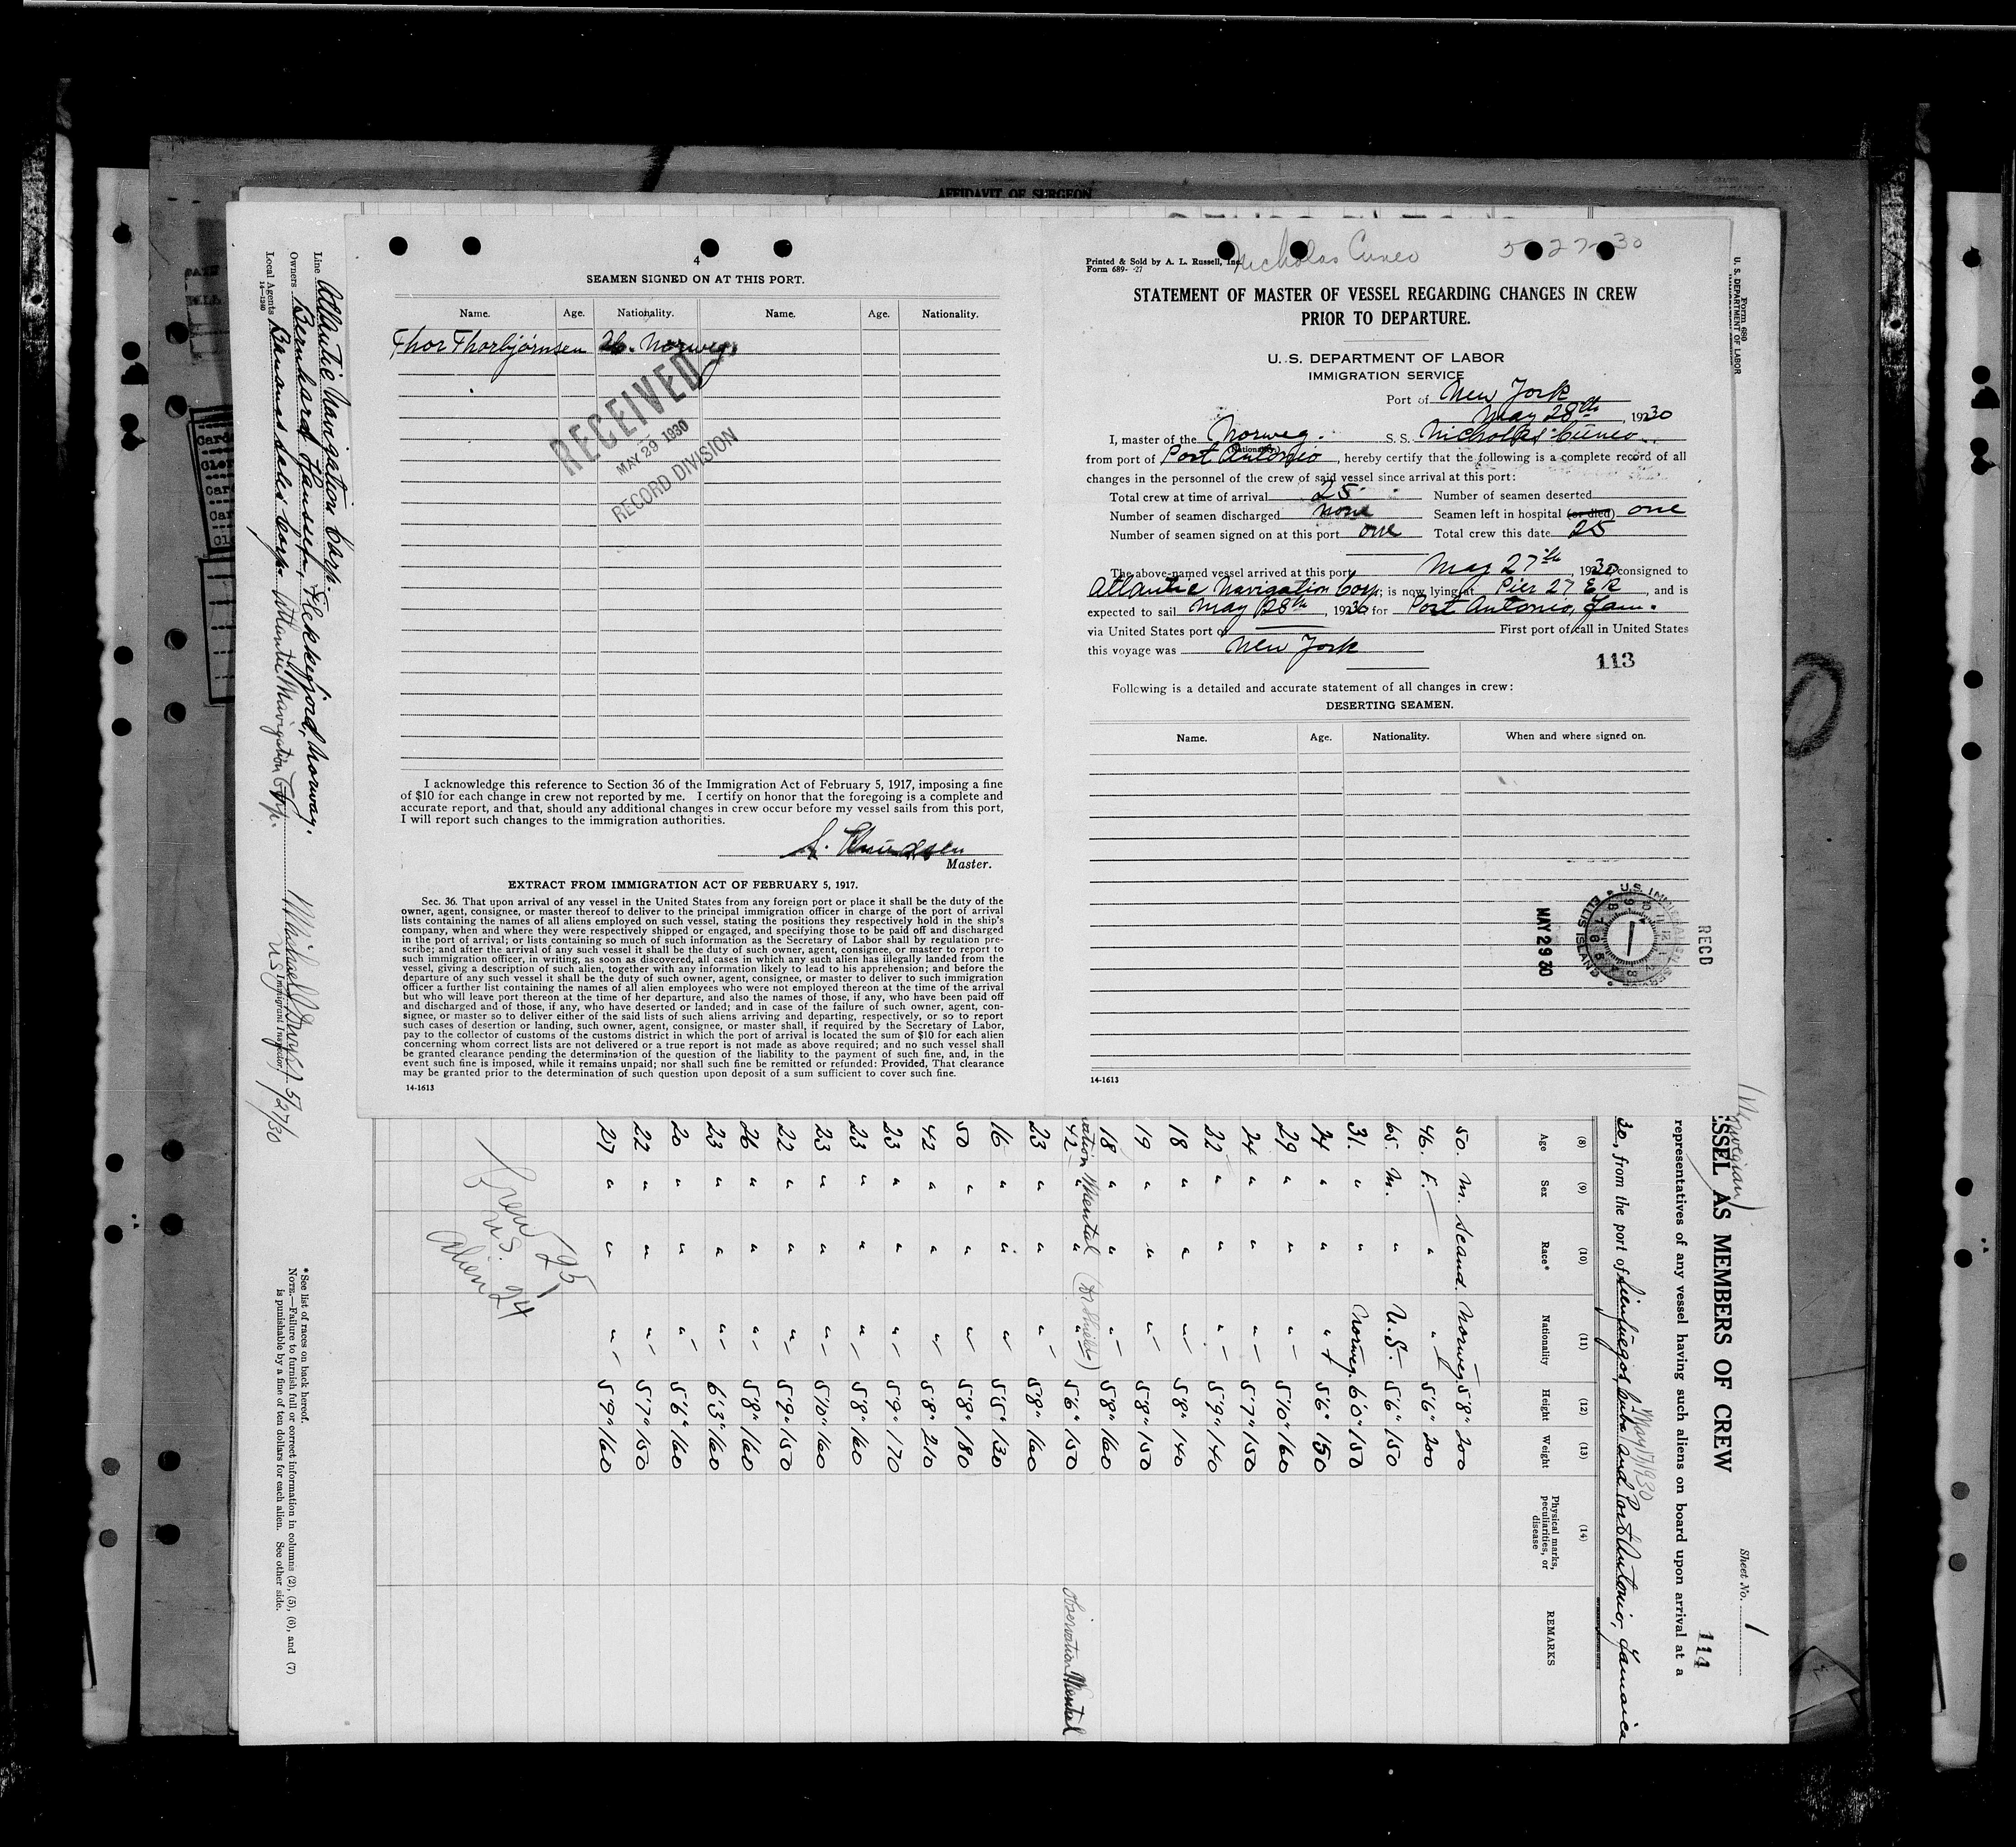 AFFIDAVIT OF SURGEON
4
SEAMEN SIGNED ON AT THIS PORT.
Name. Age. Nationality. Name. Age. Nationality.
Thor Thorbjörnsen 26. Norweg.
RECEIVED
MAY 29 1930
RECORD DIVISION
I acknowledge this reference to Section 36 of the Immigration Act of February 5, 1917, imposing a fine
of $10 for each change in crew not reported by me. I certify on honor that the foregoing is a complete and
accurate report, and that, should any additional changes in crew occur before my vessel sails from this port,
I will report such changes to the immigration authorities.
Master.
EXTRACT FROM IMMIGRATION ACT OF FEBRUARY 5, 1917.
Sec. 36. That upon arrival of any vessel in the United States from any foreign port or place it shall be the duty of the
owner, agent, consignee, or master thereof to deliver to the principal immigration officer in charge of the port of arrival
lists containing the names of all aliens employed on such vessel, stating the positions they respectively hold in the ship's
company, when and where they were respectively shipped or engaged, and specifying those to be paid off and discharged
in the port of arrival; or lists containing so much of such information as the Secretary of Labor shall by regulation pre-
scribe; and after the arrival of any such vessel it shall be the duty of such owner, agent, consignee, or master to report to
such immigration officer, in writing, as soon as discovered, all cases in which any such alien has illegally landed from the
vessel, giving a description of such alien, together with any information likely to lead to his apprehension; and before the
departure of any such vessel it shall be the duty of such owner, agent, consignee, or master to deliver to such immigration
officer a further list containing the names of all alien employees who were not employed thereon at the time of the arrival
but who will leave port thereon at the time of her departure, and also the names of those, if any, who have been paid off
and discharged and of those, if any, who have deserted or landed; and in case of the failure of such owner, agent, con-
signee, or master so to deliver either of the said lists of such aliens arriving and departing, respectively, or so to report
such cases of desertion or landing, such owner, agent, consignee, or master shall, if required by the Secretary of Labor,
pay to the collector of customs of the customs district in which the port of arrival is located the sum of $10 for each alien
concerning whom correct lists are not delivered or a true report is not made as above required; and no such vessel shall
be granted clearance pending the determination of the question of the liability to the payment of such fine, and, in the
event such fine is imposed, while it remains unpaid; nor shall such fine be remitted or refunded: Provided, That clearance
may be granted prior to the determination of such question upon deposit of a sum sufficient to cover such fine.
14-1613
Nicholas Cuneo 5 27-30
Printed & Sold by A. L. Russell, Inc.
Form 689- -27
STATEMENT OF MASTER OF VESSEL REGARDING CHANGES IN CREW
PRIOR TO DEPARTURE.
U. S. DEPARTMENT OF LABOR
IMMIGRATION SERVICE
Port of New York
May 28th, 1930
I, master of the Norweg. S. S. Nicholas Cuneo
(Nationality)
from port of Port Antonio, hereby certify that the following is a complete record of all
changes in the personnel of the crew of said vessel since arrival at this port:
Total crew at time of arrival 25 Number of seamen deserted
Number of seamen discharged none Seamen left in hospital (or died) one
Number of seamen signed on at this port one Total crew this date 25
The above-named vessel arrived at this port May 27th, 1930, consigned to
Atlantic Navigation Corp; is now lying at Pier 27 E R, and is
expected to sail May 28th, 1930 for Port Antonio, Jam.
via United States port of First port of call in United States
this voyage was New York
113
Following is a detailed and accurate statement of all changes in crew:
DESERTING SEAMEN.
Name. Age. Nationality. When and where signed on.
MAY 29 30
U.S. IMMIGRATION SERVICE
ELLIS ISLAND
RECD
14-1613
Form 680
U. S. DEPARTMENT OF LABOR
Line Atlantic Navigation Corp.
Owners Bernhard Hanssen, Flekkefjord, Norway.
Local Agents Bananas Sales Corp. Atlantic Navigation Corp.
14-1240
US Immigrant Inspector 5/27/30
*See list of races on back hereof.
NOTE.—Failure to furnish full or correct information in columns (2), (5), (6), and (7)
is punishable by a fine of ten dollars for each alien. See other side.
Sheet No. 1
114
(Norwegian)
ESSEL AS MEMBERS OF CREW
representatives of any vessel having such aliens on board upon arrival at a
May 17, 1930
30, from the port of Cienfuegos, Cuba and Port Antonio, Jamaica
(8) (9) (10) (11) (12) (13) (14)
Age Sex Race* Nationality Height Weight Physical marks, peculiarities, or disease REMARKS
50. M. Scand. Norweg. 5'8" 200
46. F. " " 5'6" 200
65. M. " U.S. 5'6" 150
31. " " Norweg. 6'0" 150
24 " " " 5'6" 150
29 " " " 5'10" 160
24 " " " 5'7" 150
22 " " " 5'9" 140
18 " " " 5'8" 140
19 " " " 5'8" 150
18 " " " 5'8" 160
42 " " " 5'6" 150
Mental Observation Mental
23 " " " 5'8" 160
16 " " " 5'5" 130
50 " " " 5'8" 180
42 " " " 5'8" 210
23 " " " 5'9" 170
23 " " " 5'8" 160
23 " " " 5'10" 160
22 " " " 5'9" 150
26 " " " 5'8" 160
23 " " " 6'3" 160
20 " " " 5'6" 160
22 " " " 5'7" 150
27 " " " 5'9" 160
Crew 25
U.S. 1
Alien 24